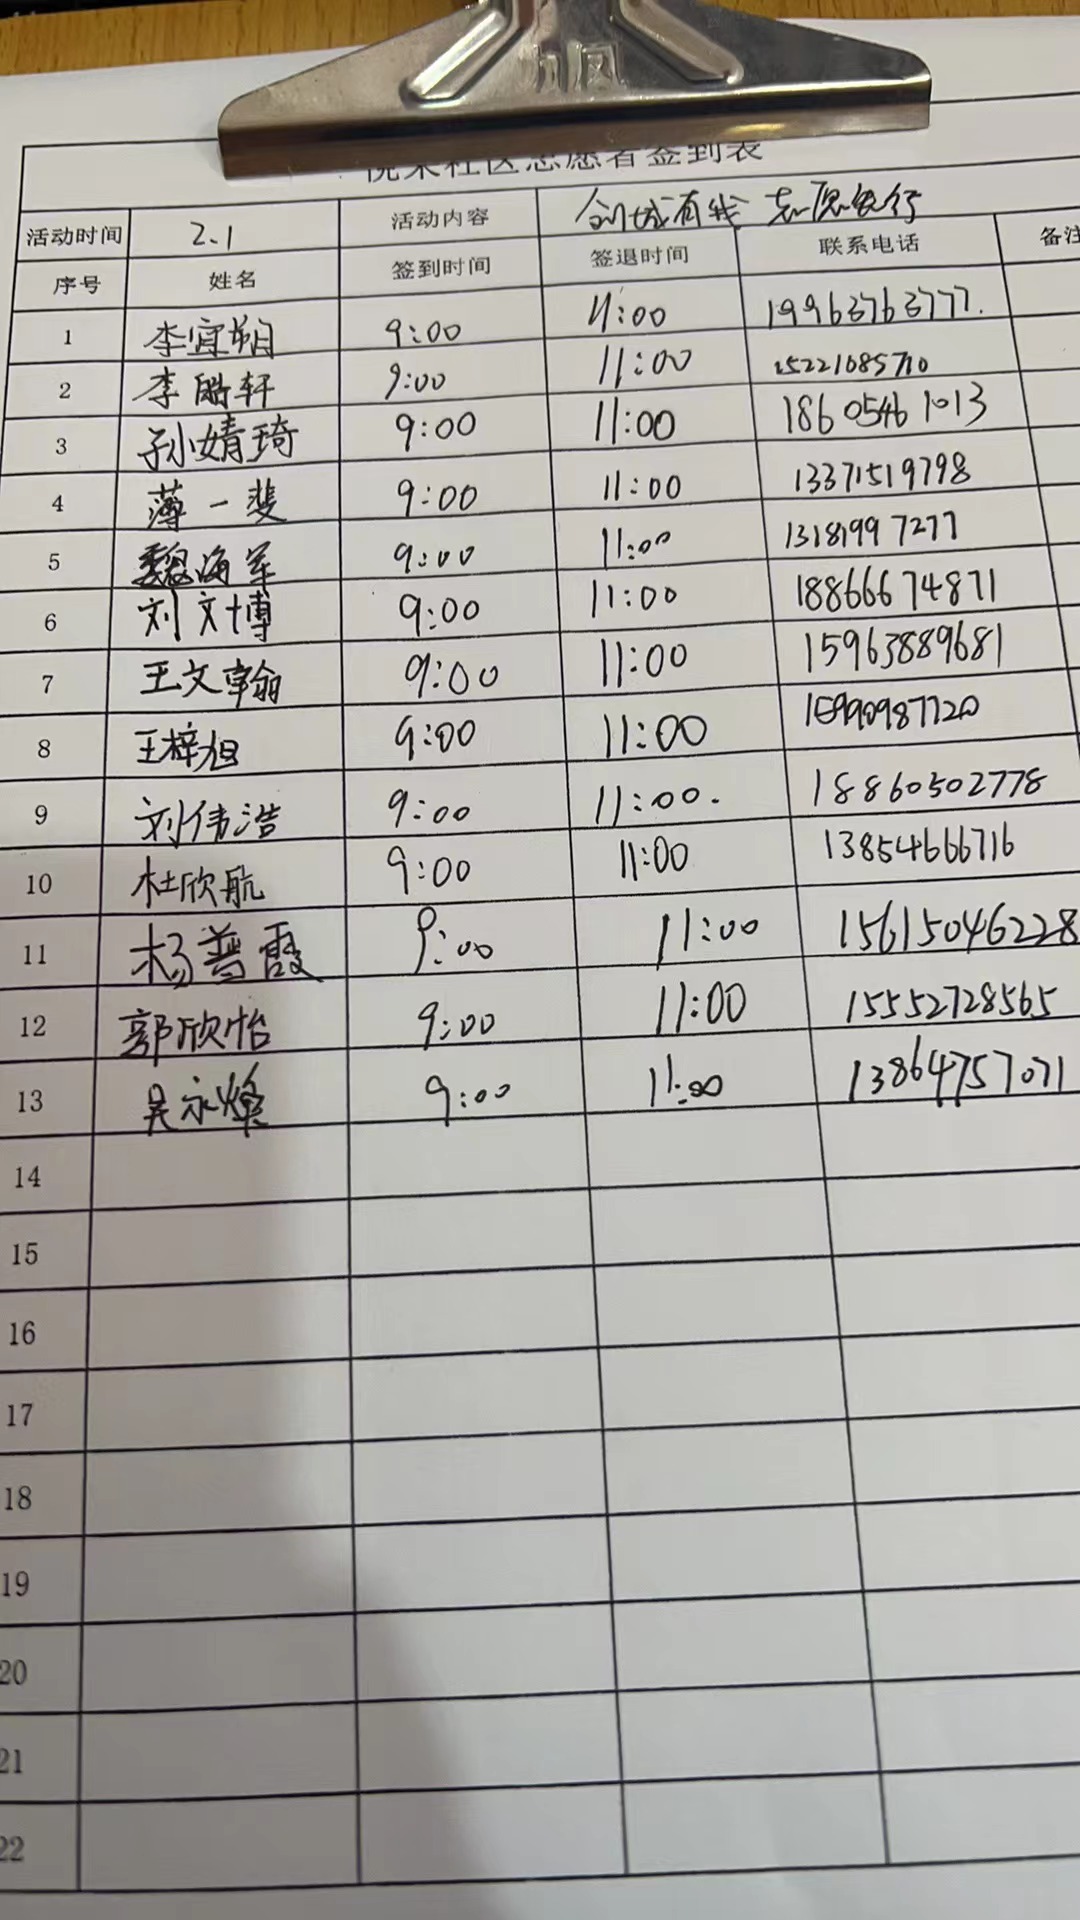 悦来社区志愿者签到表
活动时间 2.1 活动内容 创城有我 志愿银行
序号 姓名 签到时间 签退时间 联系电话 备注
1 李宜朔 9:00 11:00 19963763777.
2 李皓轩 9:00 11:00 15221085710
3 孙婧琦 9:00 11:00 18605461013
4 薄一斐 9:00 11:00 13371519798
5 魏海军 9:00 11:00 13181997277
6 刘文博 9:00 11:00 18866674871
7 王文翰 9:00 11:00 15963889681
8 王梓旭 9:00 11:00
9 刘伟浩 9:00 11:00. 18860502778
10 杜欣航 9:00 11:00 13854666716
11 杨普霞 9:00 11:00 15615046228
12 郭欣怡 9:00 11:00 15552728565
13 吴永焕 9:00 11:00 13864757071
14
15
16
17
18
19
20
21
22